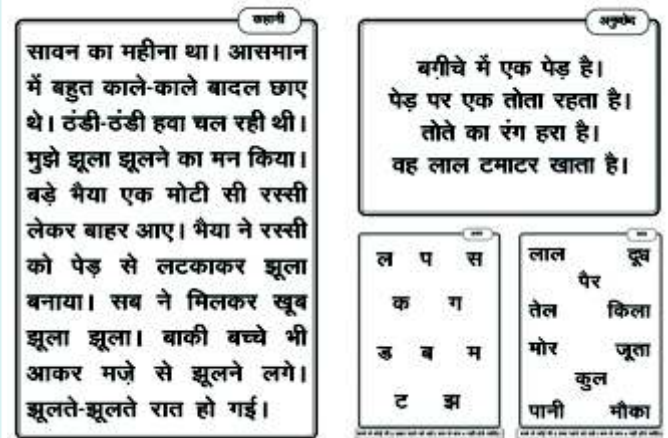 कहानी
सावन का महीना था। आसमान
में बहुत काले-काले बादल छाए
थे। ठंडी-ठंडी हवा चल रही थी।
मुझे झूला झूलने का मन किया।
बड़े भैया एक मोटी सी रस्सी
लेकर बाहर आए। भैया ने रस्सी
को पेड़ से लटकाकर झूला
बनाया। सब ने मिलकर खूब
झूला झूला। बाकी बच्चे भी
आकर मज़े से झूलने लगे।
झूलते-झूलते रात हो गई।
अनुच्छेद
बग़ीचे में एक पेड़ है।
पेड़ पर एक तोता रहता है।
तोते का रंग हरा है।
वह लाल टमाटर खाता है।
ल प स
क ग
ड ब म
ट झ
लाल दूध
पैर
तेल किला
मोर जूता
कुल
पानी मौका